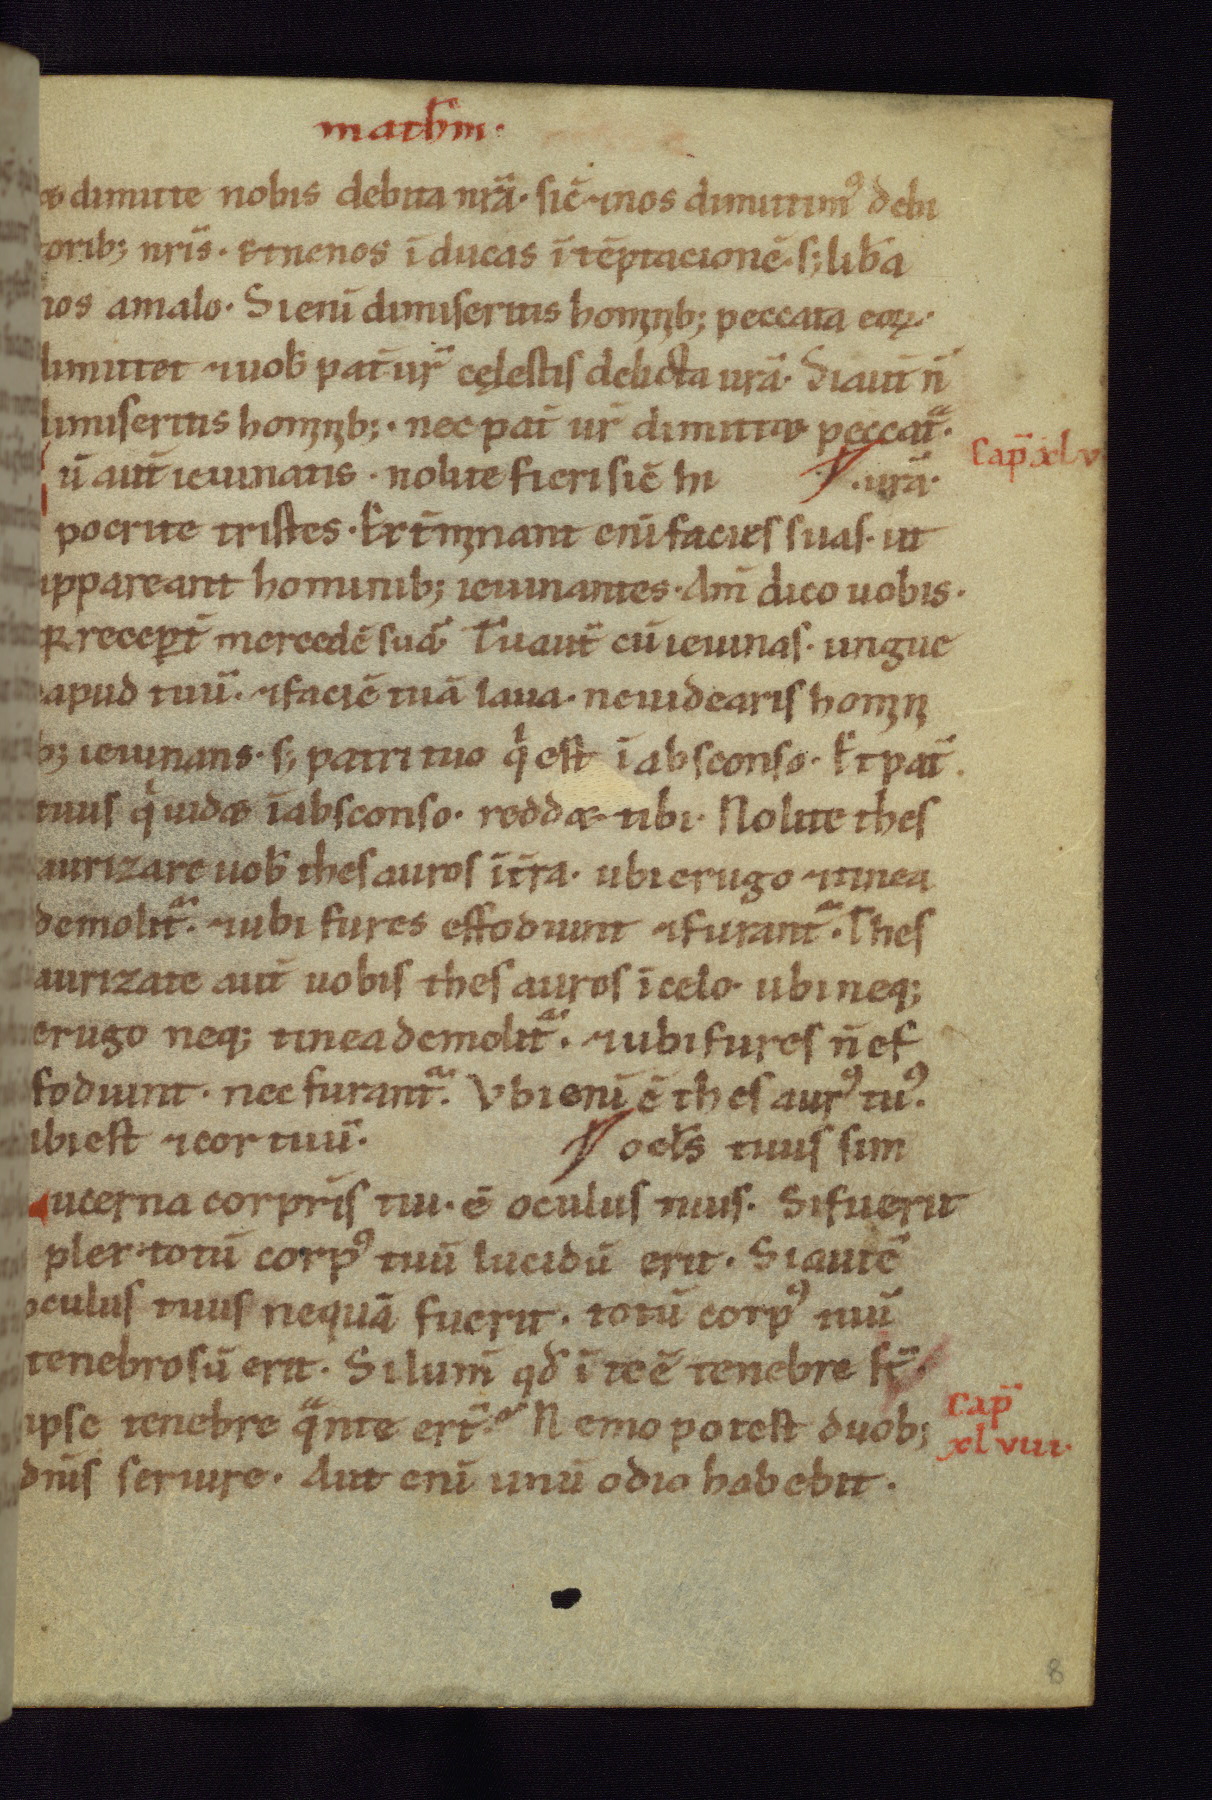 math̅m·
& dimitte nobis debita nr̅a· sic̅ ⁊nos dimittim⁹ debi
torib; nr̅is· & ne nos i̅ducas i̅ te̅ptacione̅· s; lib̅a
nos amalo· Si eni̅ dimiseritis hominib; peccata eoꝝ·
dimittet ⁊uob̅ pat̅ ur̅ cęlestis delicta ur̅a· Si aut̅ n̅
dimiseritis hominib;· nec pat̅ ur̅ dimittet peccat̅a·
cap̅ xlv
u̅ aut̅ ieiunatis· nolite fieri sic̅ hi ·ur̅a·
pocrite tristes· Ext̅minant eni̅ facies suas· ut
appareant hominib; ieiunantes· Am̅ dico uobis·
qr recepe̅t mercede̅ sua̅· Tu aut̅ cu̅ ieiunas· ungue
capud tuu̅· ⁊facie̅ tua̅ laua· ne uidearis homin
b; ieiunans· s; patri tuo qⁱ est i̅ absconso· Et pat̅
tuus qⁱ uid& i̅absconso· redd& tibi· Nolite thes
aurizare uob̅ thesauros i̅ t̅ra· ubi erugo ⁊tinea
demolit̅· ⁊ubi fures effodiunt ⁊furant̅· Thes
aurizate aut̅ uobis thesauros i̅ celo· ubi neq;
erugo neq; tinea demolit̅· ⁊ubi fures n̅ ef
fodiunt· nec furant̅· Vbi eni̅ e̅ thesaur⁹ tu⁹·
ibi est ⁊cor tuu̅· ocl̅s tuus sim
Lucerna corpris tui· e̅ oculus tuus· Si fuerit
plex· totu̅ corp⁹ tuu̅ lucidu̅ erit· Si aute̅
oculus tuus nequa̅ fuerit· totu̅ corp⁹ tuu̅
tenebrosu̅ erit· Si lum̅ qd̅ i̅ te e̅ tenebre st̅·
ipse tenebre qᵃnte ert̅· Nemo potest duob;
cap̅
xlviii·
dn̅is seruire· Aut eni̅ unu̅ odio habebit·
8